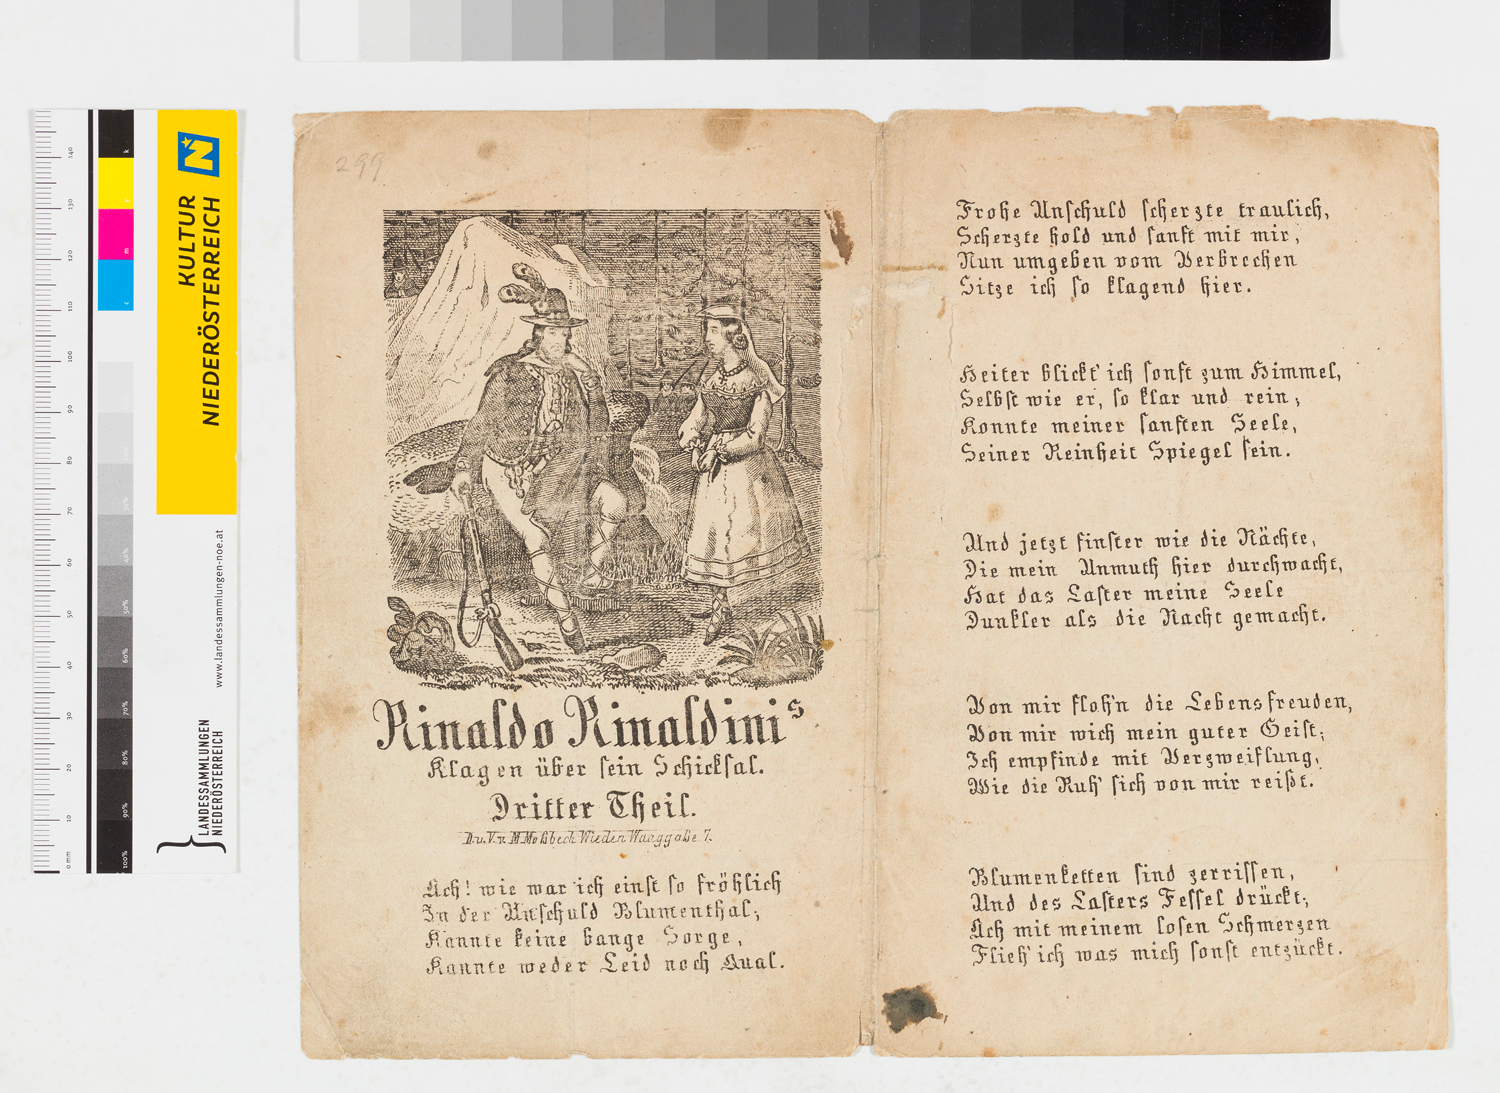 299
Rinaldo Rinaldinis
Klagen über sein Schicksal.
Dritter Theil.
D.u.V.v. M. Moßbeck Wieden Waaggaße 7.
Ach! wie war ich einst so fröhlich
In der Unschuld Blumenthal,
Kannte keine bange Sorge,
Kannte weder Leid noch Qual.
Frohe Unschuld scherzte traulich,
Scherzte hold und sanft mit mir,
Nun umgeben vom Verbrechen
Sitze ich so klagend hier.
Heiter blickt' ich sonst zum Himmel,
Selbst wie er, so klar und rein;
Konnte meiner sanften Seele,
Seiner Reinheit Spiegel sein.
Und jetzt finster wie die Nächte,
Die mein Unmuth hier durchwacht,
Hat das Laster meine Seele
Dunkler als die Nacht gemacht.
Von mir floh'n die Lebensfreuden,
Von mir wich mein guter Geist;
Ich empfinde mit Verzweiflung,
Wie die Ruh' sich von mir reißt.
Blumenketten sind zerrissen,
Und des Lasters Fessel drückt;
Ach mit meinem losen Schmerzen
Flieh' ich was mich sonst entzückt.
KULTUR
NIEDERÖSTERREICH
www.landessammlungen-noe.at
LANDESSAMMLUNGEN
NIEDERÖSTERREICH
140
130
120
110
100
90
80
70
60
50
40
30
20
10
0 mm
k
y
m
c
40%
50%
60%
70%
80%
90%
100%